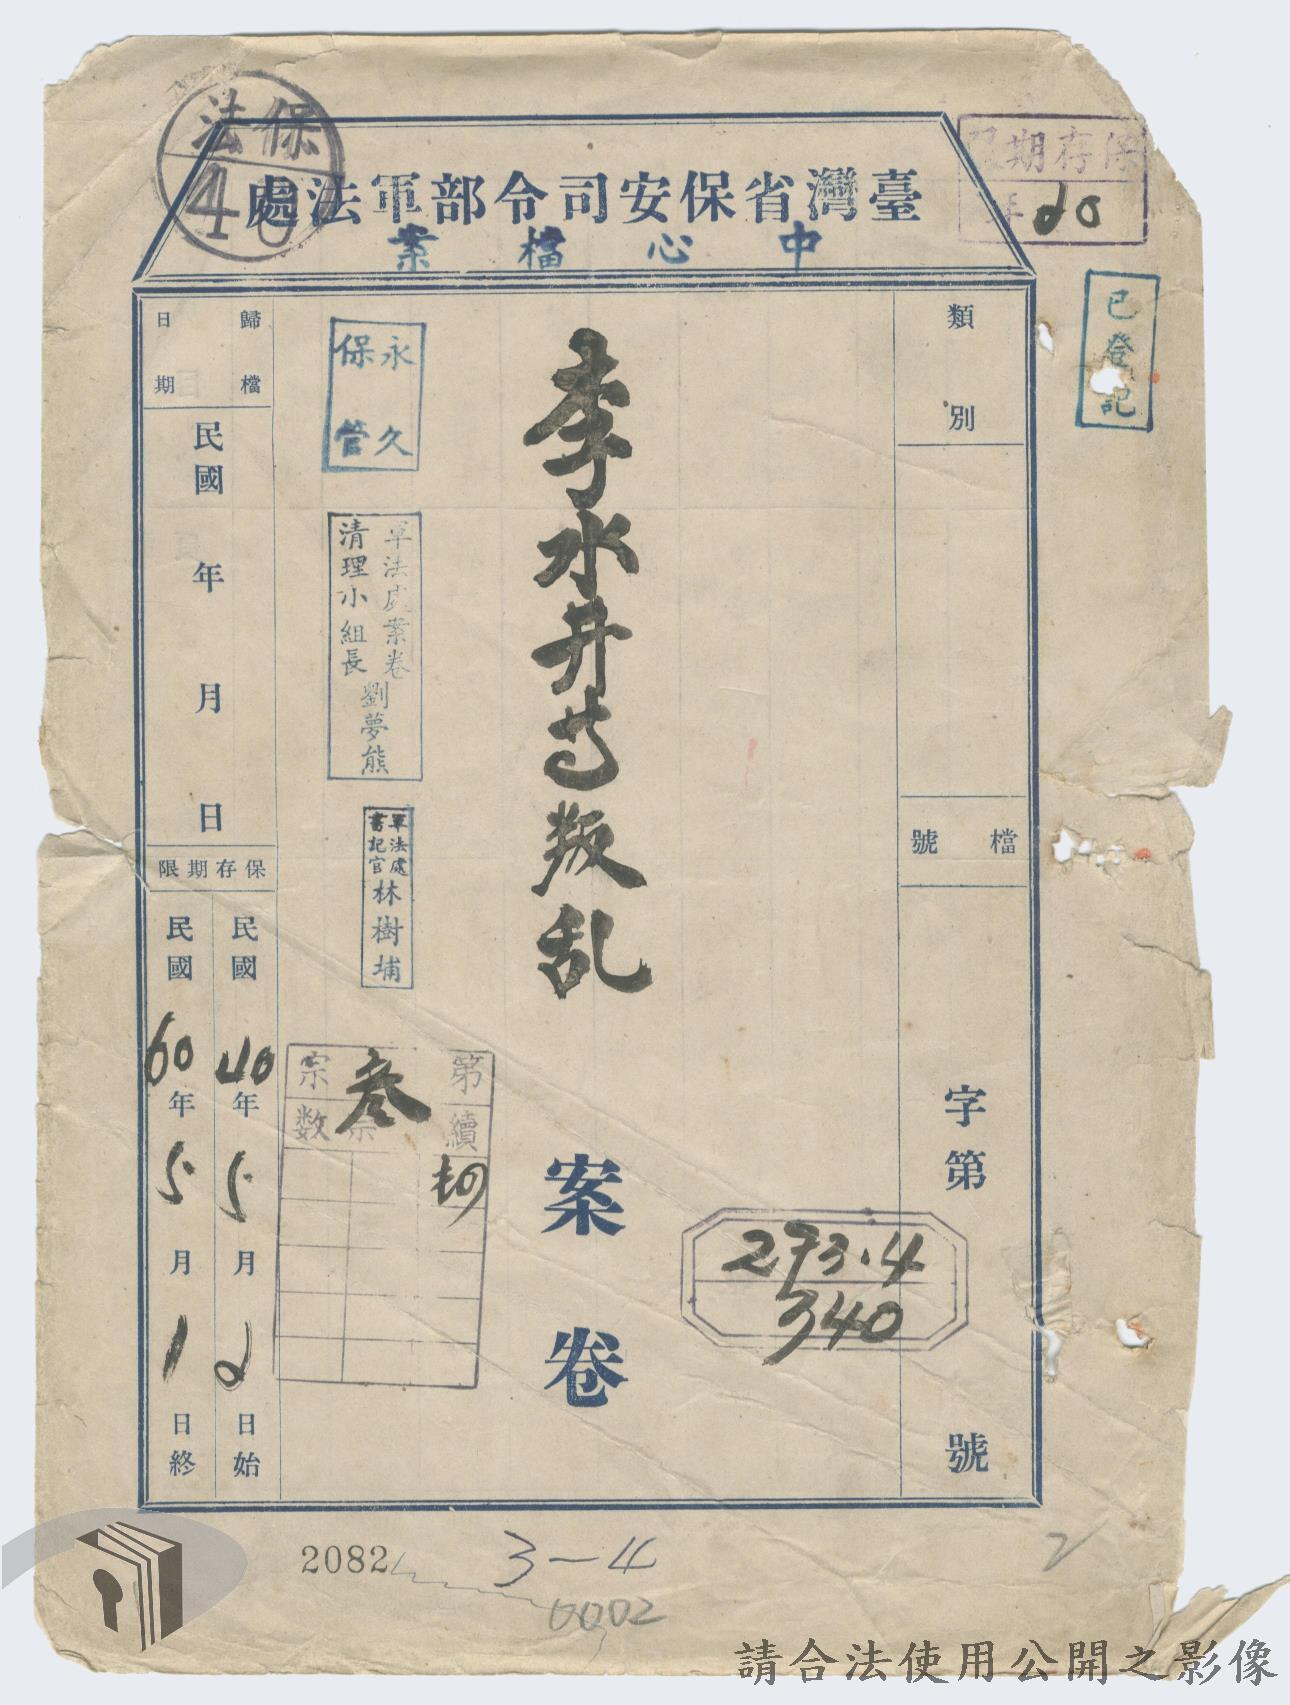 保法
40
臺灣省保安司令部軍法處
中心檔案
保存期限
20年
已登記
類別
檔號
字第
號
李水井等叛乱
案卷
273.4
340
永久
保管
軍法處案卷
清理小組長
劉夢熊
軍法處
書記官
林樹埔
第
宗
續
宗
数
叁
歸檔
日期
民國
年
月
日
保存期限
民國40年5月2日始
民國60年5月1日終
2082
3-4
0002
請合法使用公開之影像